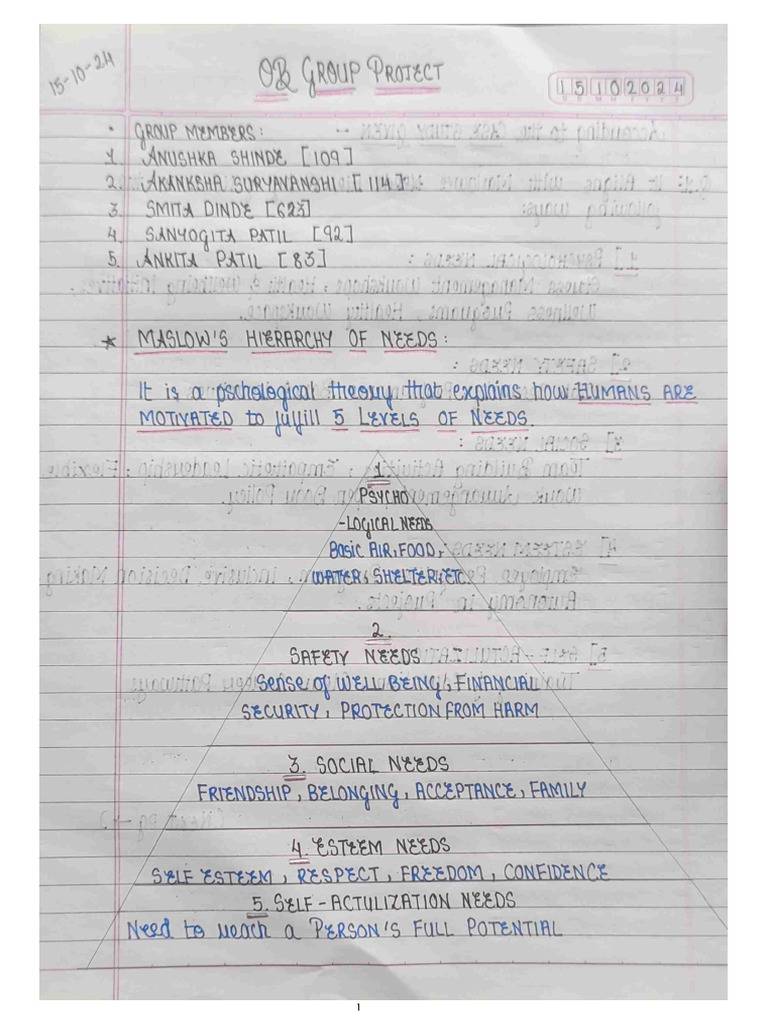 15-10-24
OB GROUP PROJECT
15102024
• GROUP MEMBERS:
1. ANUSHKA SHINDE [109]
2. AKANKSHA SURYAVANSHI [114]
3. SMITA DINDE [623]
4. SANYOGITA PATIL [92]
5. ANKITA PATIL [83]
★ MASLOW'S HIERARCHY OF NEEDS:
It is a pschological theory that explains how HUMANS ARE
MOTIVATED to fulfill 5 LEVELS OF NEEDS.
1.
PSYCHO
-LOGICAL NEEDS
BASIC AIR, FOOD,
WATER, SHELTER, ETC.
2.
SAFETY NEEDS
Sense of WELL BEING, FINANCIAL
SECURITY, PROTECTION FROM HARM
3. SOCIAL NEEDS
FRIENDSHIP, BELONGING, ACCEPTANCE, FAMILY
4. ESTEEM NEEDS
SELF ESTEEM, RESPECT, FREEDOM, CONFIDENCE
5. SELF-ACTULIZATION NEEDS
Need to reach a PERSON'S FULL POTENTIAL
1